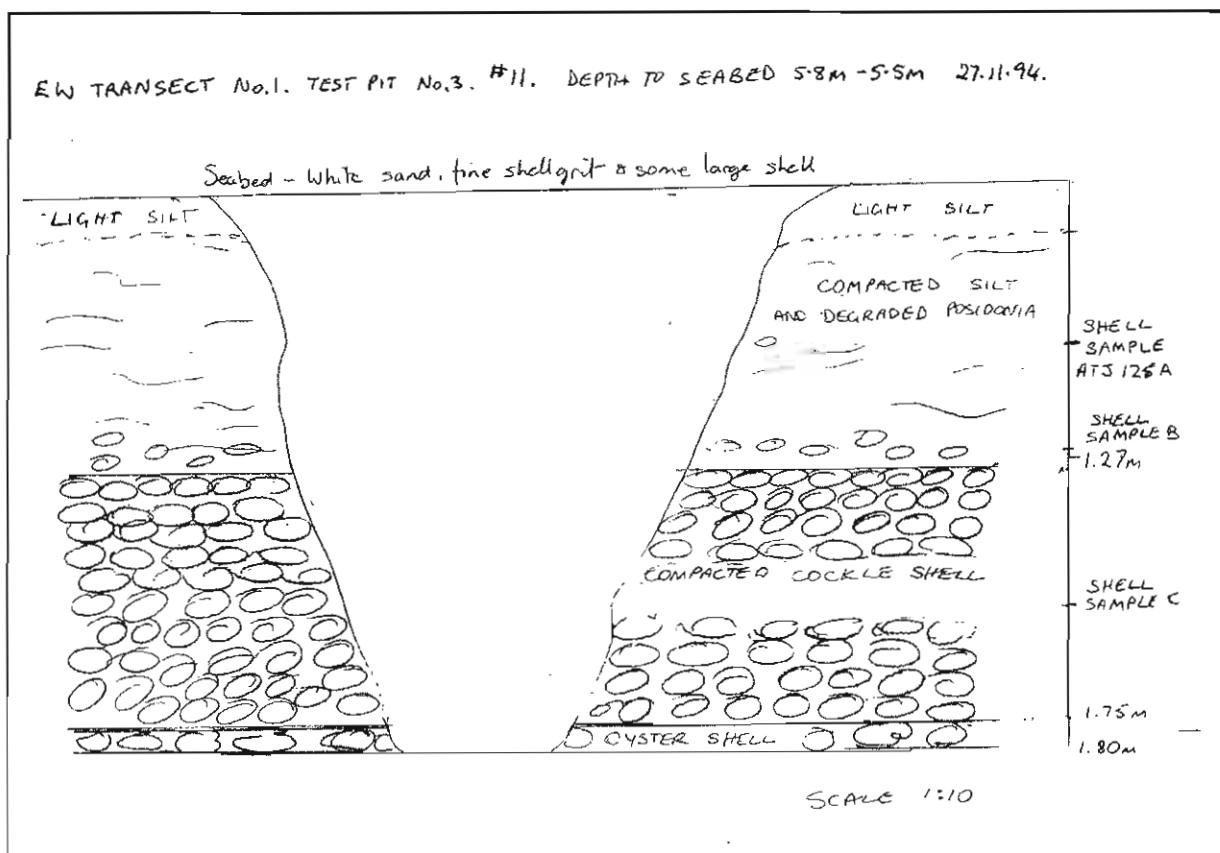 EW TRANSECT No.1. TEST PIT No.3. #11. DEPTH TO SEABED 5.8M - 5.5M 27.11.94.
Seabed - White sand, fine shellgrit & some large shell
LIGHT SILT
LIGHT SILT
COMPACTED SILT
AND DEGRADED POSIDONIA
SHELL
SAMPLE
ATJ 125A
SHELL
SAMPLE B
1.27M
COMPACTED COCKLE SHELL
SHELL
SAMPLE C
1.75M
OYSTER SHELL
1.80M
SCALE 1:10